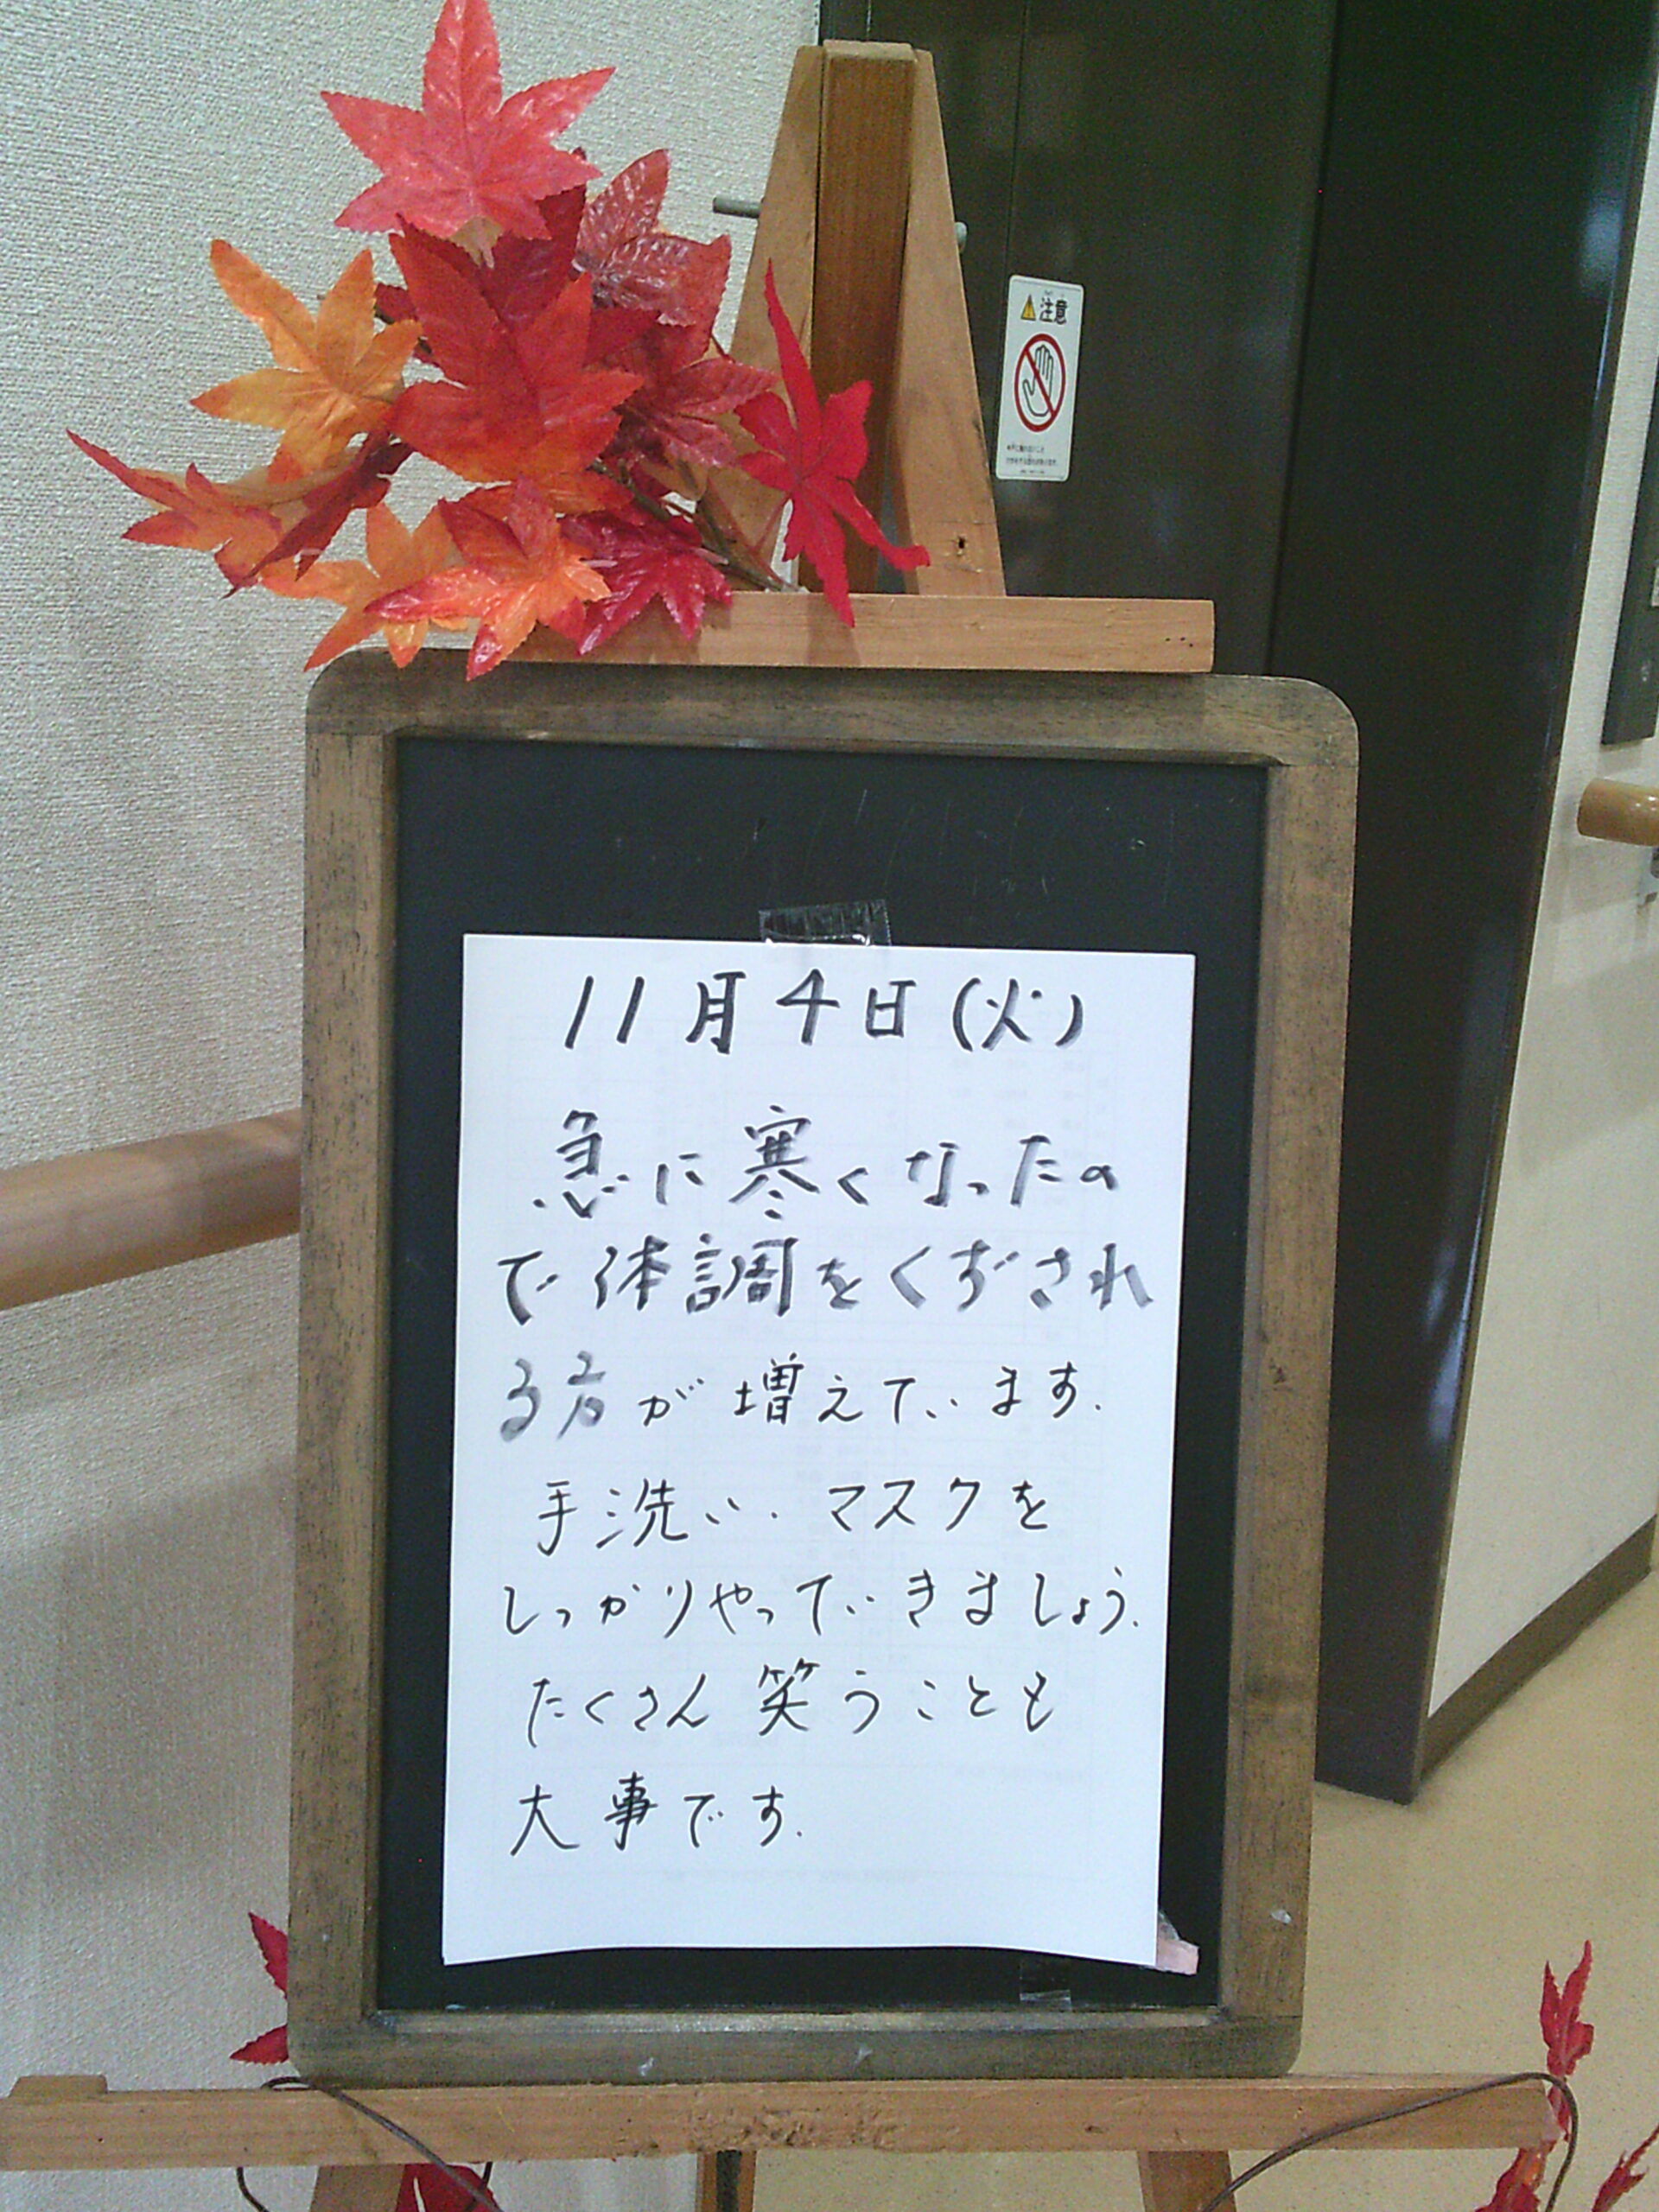 注意
11月4日(火)
急に寒くなったの
で体調をくずされ
る方が増えています.
手洗い.マスクを
しっかりやっていきましょう.
たくさん笑うことも
大事です.